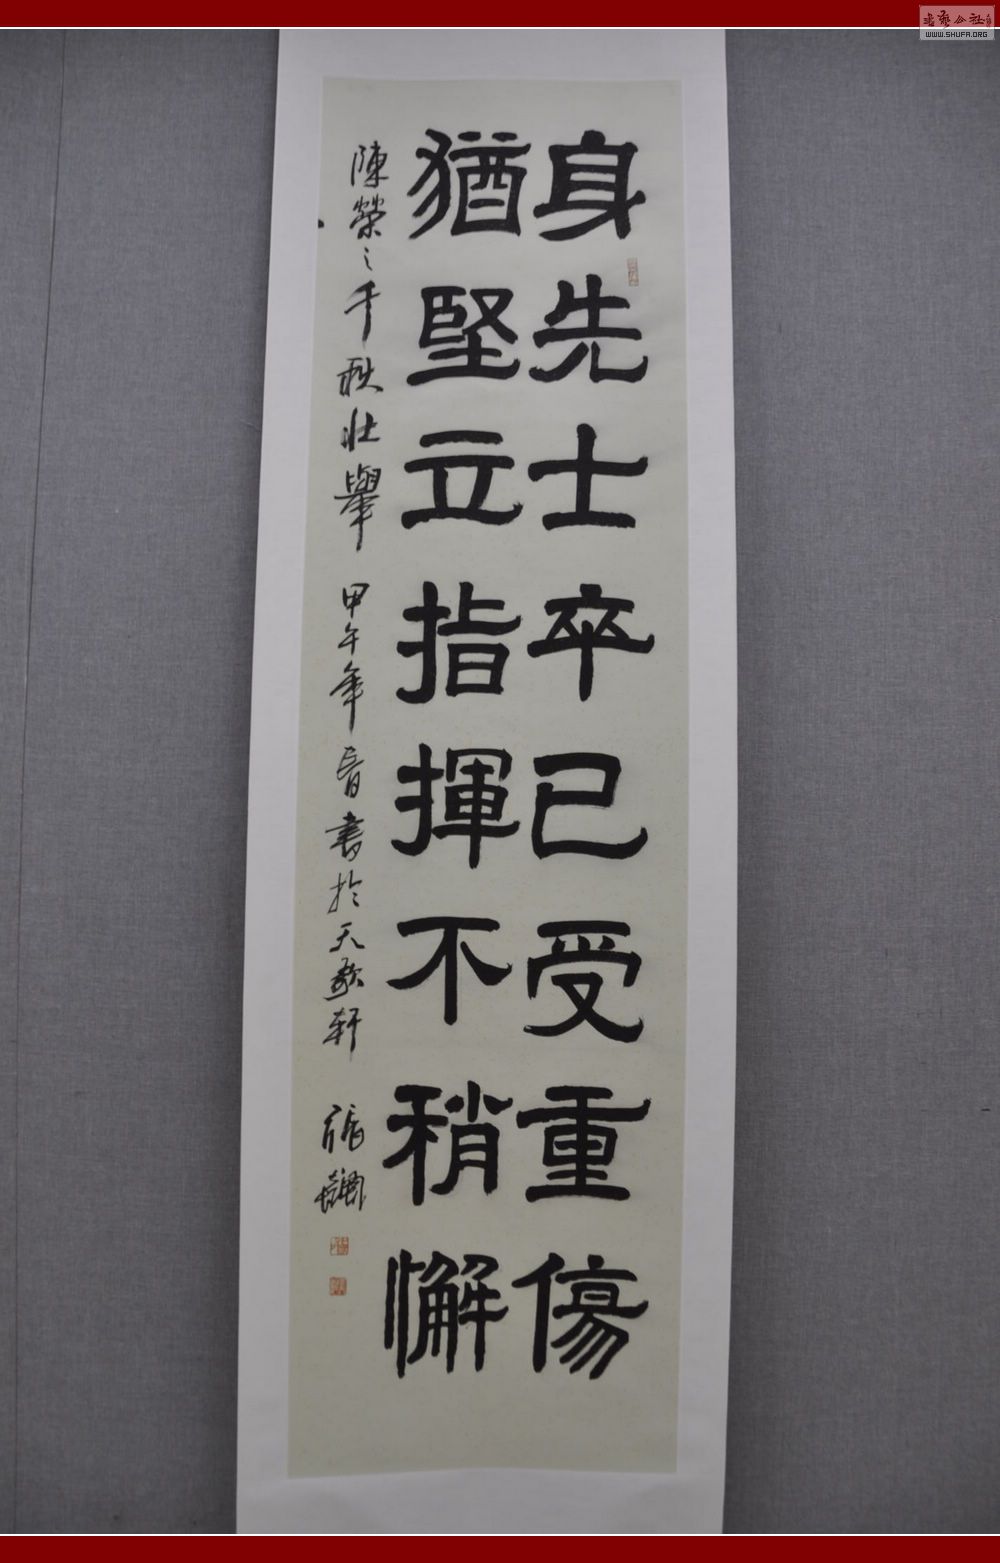 身先士卒已受重傷
猶堅立指揮不稍懈
陳榮之千秋壯舉 甲午年春書於天歌軒 張
WWW.SHUFA.ORG